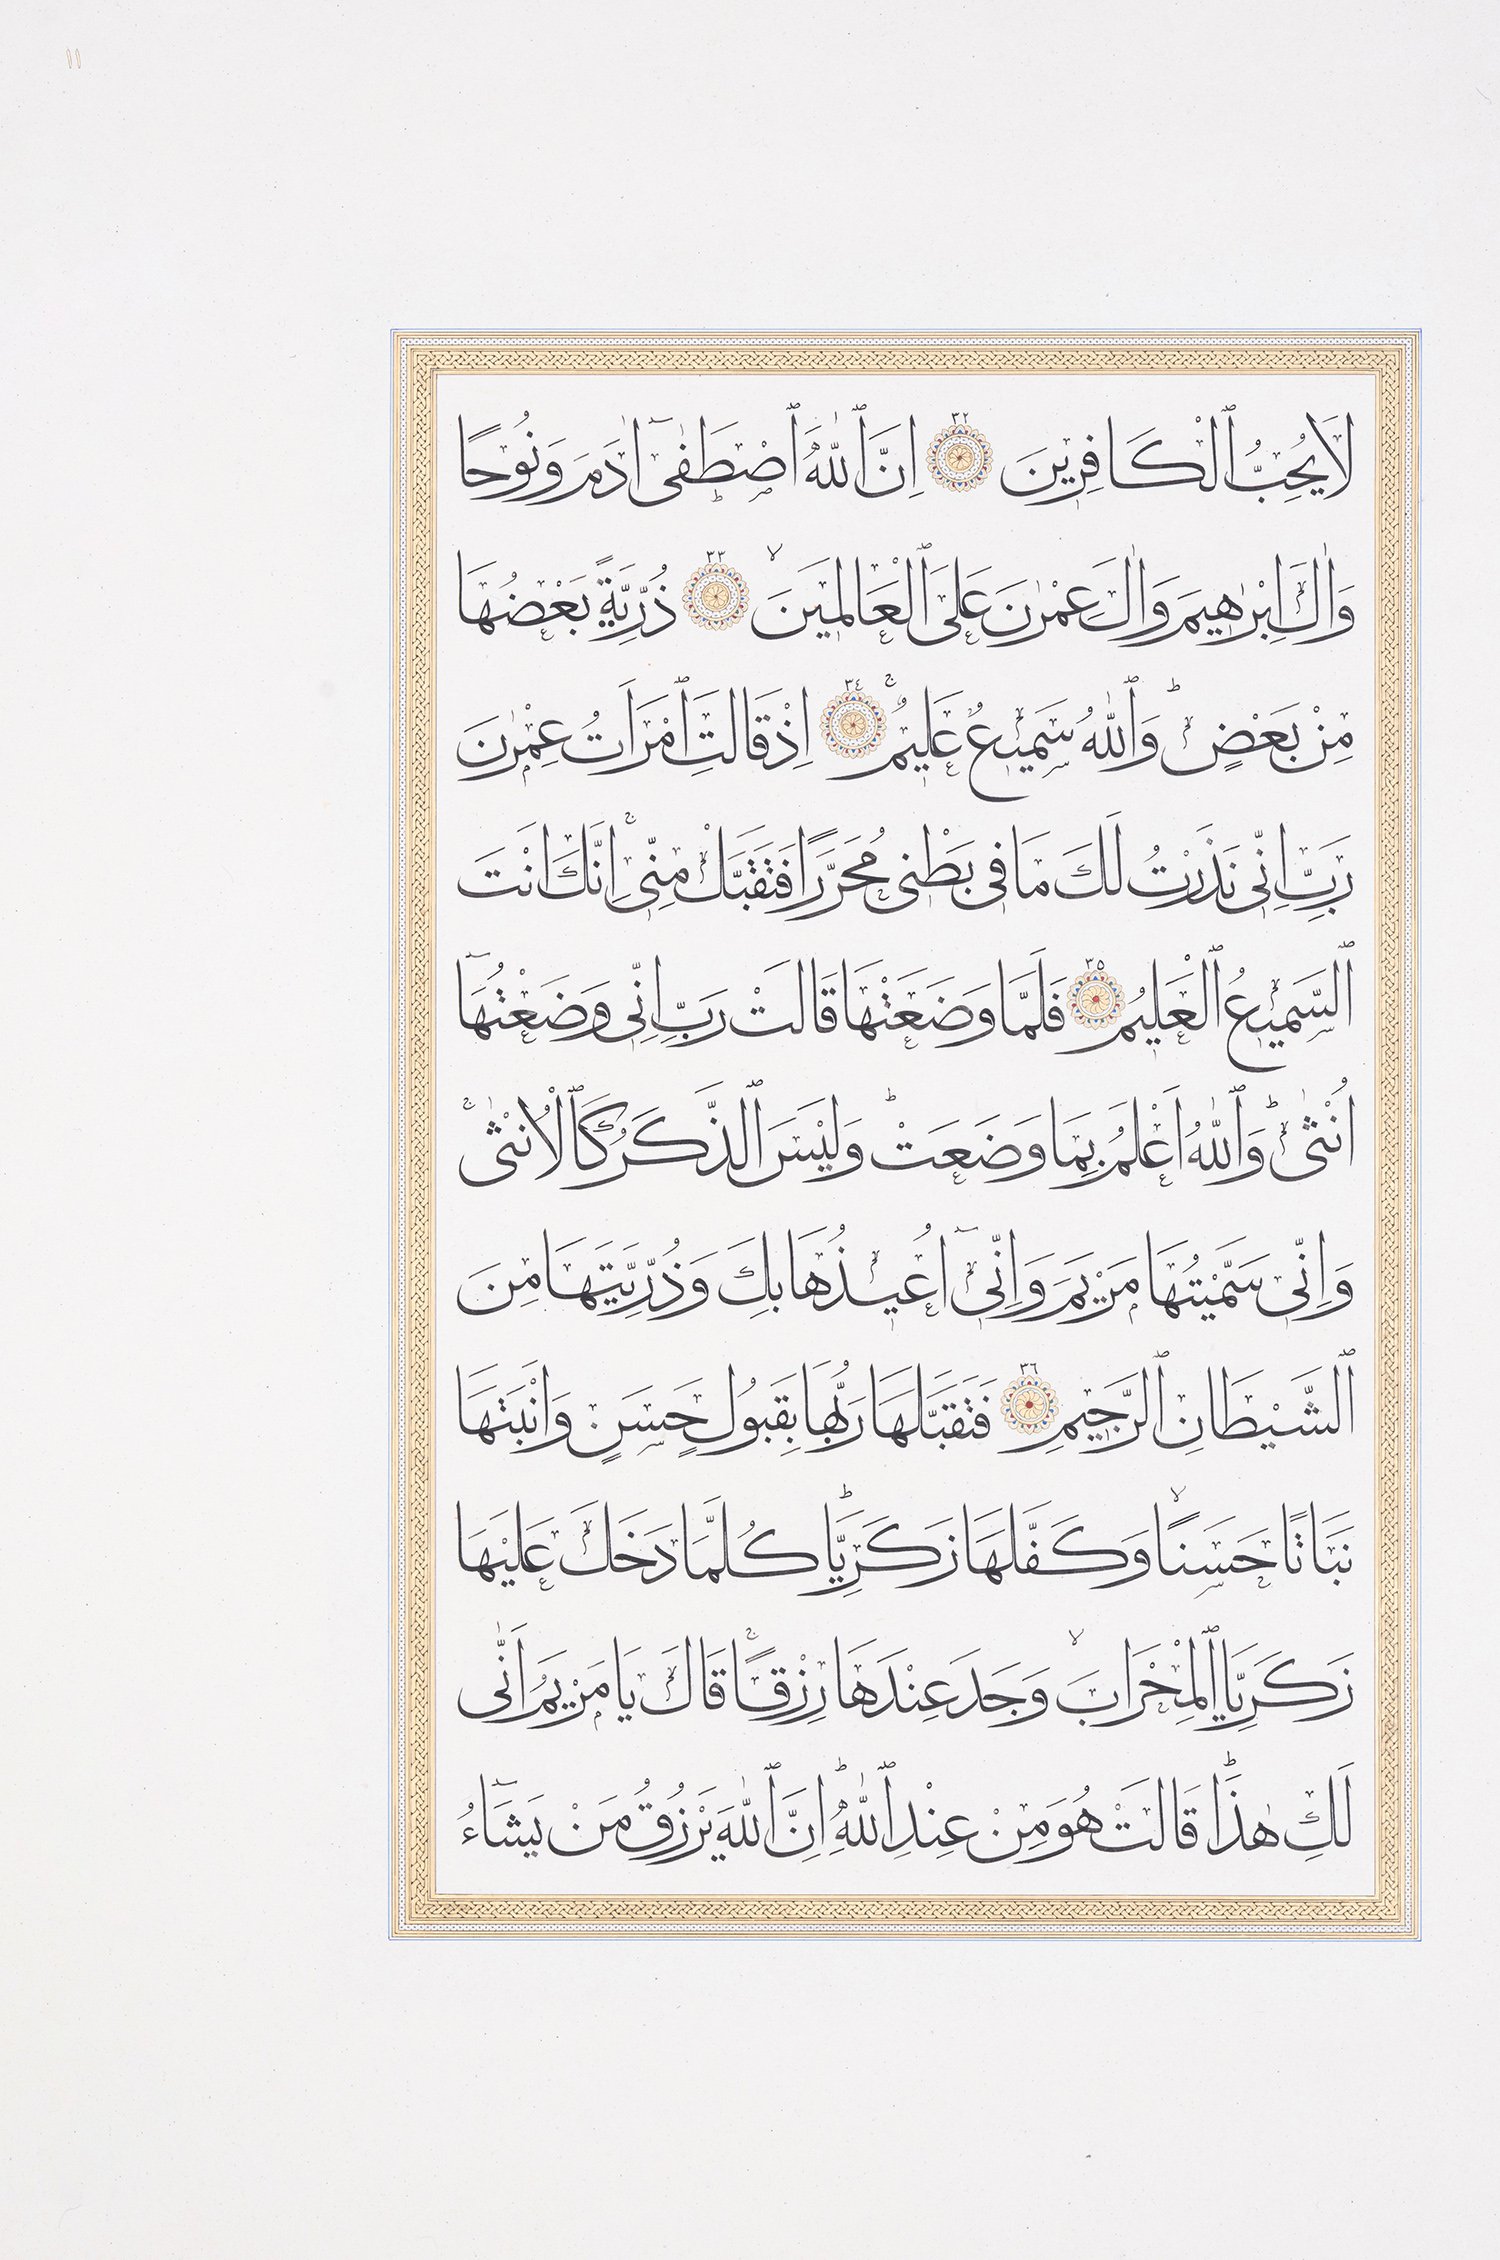 ١١
لَا يُحِبُّ ٱلْكَافِرِينَ ٣٢ اِنَّ ٱللّٰهَ ٱصْطَفٰىٓ اٰدَمَ وَنُوحًا
وَاٰلَ اِبْرٰهِيمَ وَاٰلَ عِمْرٰنَ عَلَى ٱلْعَالَمِينَۙ ٣٣ ذُرِّيَّةً بَعْضُهَا
مِنْ بَعْضٍۜ وَٱللّٰهُ سَمِيعٌ عَلِيمٌۚ ٣٤ اِذْ قَالَتِ ٱمْرَاَتُ عِمْرٰنَ
رَبِّ اِنِّى نَذَرْتُ لَكَ مَا فِى بَطْنِى مُحَرَّرًا فَتَقَبَّلْ مِنِّىۚ اِنَّكَ اَنْتَ
ٱلسَّمِيعُ ٱلْعَلِيمُ ٣٥ فَلَمَّا وَضَعَتْهَا قَالَتْ رَبِّ اِنِّى وَضَعْتُهَآ
اُنْثٰىۜ وَٱللّٰهُ اَعْلَمُ بِمَا وَضَعَتْۜ وَلَيْسَ ٱلذَّكَرُ كَٱلْاُنْثٰىۚ
وَاِنِّى سَمَّيْتُهَا مَرْيَمَ وَاِنِّىٓ اُعِيذُهَا بِكَ وَذُرِّيَّتَهَا مِنَ
ٱلشَّيْطَانِ ٱلرَّجِيمِ ٣٦ فَتَقَبَّلَهَا رَبُّهَا بِقَبُولٍ حَسَنٍ وَاَنْبَتَهَا
نَبَاتًا حَسَنًاۙ وَكَفَّلَهَا زَكَرِيَّاۜ كُلَّمَا دَخَلَ عَلَيْهَا
زَكَرِيَّا ٱلْمِحْرَابَۙ وَجَدَ عِنْدَهَا رِزْقًاۚ قَالَ يَا مَرْيَمُ اَنّٰى
لَكِ هٰذَاۜ قَالَتْ هُوَ مِنْ عِنْدِ ٱللّٰهِۜ اِنَّ ٱللّٰهَ يَرْزُقُ مَنْ يَشَآءُ